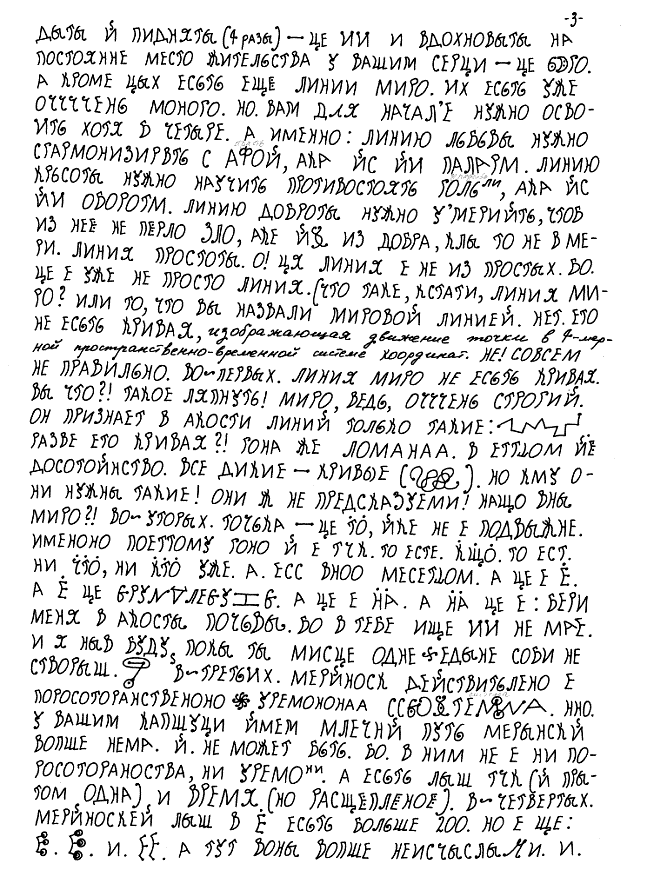 -3-
ДЫТЫ Й ПИДНЯТЫ (4 РАЗЫ) — ЦЕ ИИ И ВДОХНОВЫТЫ НА
ПОСТОЯННЕ МЕСТО ЖИТЕЛЬСТВА У ВАШИМ СЕРЦИ — ЦЕ
А КРОМЕ ЦЫХ ЕСЬТЬ ЕЩЕ ЛИНИИ МИРО. ИХ ЕСЬТЬ УЖЕ
ОЧЧЧЧЕНЬ МОНОГО. НО. ВАМ ДЛЯ НАЧАЛ'Е НУЖНО ОСВО-
ИТЬ ХОТЯ В ЧЕТЫРЕ. А ИМЕННО: ЛИНИЮ ЛЬВЬВЫ НУЖНО
СГАРМОНИЗИРВТЬ С АФОЙ, АКА ЙС ЙИ ПАЛАРМ. ЛИНИЮ
КРЬСОТЫ НУЖНО НАУЧИТЬ ПРОТИВОСТОЯТЬ ГОЛЬЛИ, АКА ЙС
ЙИ ОБОРОТМ. ЛИНИЮ ДОБРОТЫ НУЖНО У'МЕРИЙТЬ, ЧТОБ
ИЗ НЕЕ НЕ ПЕРЛО ЗЛО, АКЕ ИЗ ДОБРА, КЛЫ ТО НЕ В МЕ-
РИ. ЛИНИЯ ПРОСТОТЫ. О! ЦЯ ЛИНИЯ Е НЕ ИЗ ПРОСТЫХ. БО.
ЦЕ Е УЖЕ НЕ ПРОСТО ЛИНИЯ. (ЧТО ТАКЕ, КСТАТИ, ЛИНИЯ МИ-
РО? ИЛИ ТО, ЧТО ВЫ НАЗВАЛИ МИРОВОЙ ЛИНИЕЙ. НЕТ. ЕТО
НЕ ЕСЬТЬ КРИВАЯ, изображающая движение точки в 4-мер-
ной пространственно-временной системе координат. НЕ! СОВСЕМ
НЕ ПРАВИЛЬНО. ВО-ПЕРВЫХ. ЛИНИЯ МИРО НЕ ЕСЬТЬ КРИВАЯ.
ВЫ ЧТО?! ТАКОЕ ЛЯПНУТЬ! МИРО, ВЕДЬ, ОЧЧЧЕНЬ СТРОГИЙ.
ОН ПРИЗНАЕТ В АКОСТИ ЛИНИЙ ТОЛЬКО ТАКИЕ:
РАЗВЕ ЕТО КРИВАЯ?! ГОНА ЖЕ ЛОМАНАА. В ЕТТДОМ ЙЕ
ДОСОТОЙНСТВО. ВСЕ ДИКИЕ — КРИВЫЕ ( ). НО КМУ О-
НИ НУЖНЫ ТАКИЕ! ОНИ Ж НЕ ПРЕДСКАЗУЕМИ! НАЩО ВНЫ
МИРО?! ВО-УТОРЫХ. ТОЧЬКА — ЦЕ ТО, ЙКЕ НЕ Е ПОДВЫЖНЕ.
ИМЕНОНО ПОЕТТОМУ ГОНО Й Е ТЧК. ТО ЕСТЕ. КЩО. ТО ЕСТ.
НИ ЧТО, НИ КТО УЖЕ. А. ЕСС ВНОО МЕСЕТДОМ. А ЦЕ Е Ё.
А Ё ЦЕ . А ЦЕ Е НА. А НА ЦЕ Е: БЕРИ
МЕНЯ В АКОСТЫ ПОЧЬВЫ. БО В ТЕБЕ ИЩЕ ИИ НЕ МАЕ.
И Я НЫВ БУДУ, ПОКЫ ТЫ МИСЦЕ ОДНЕ ЕДЫНЕ СОБИ НЕ
СТВОРЫШ. В-ТРЕТЬИХ. МЕРИНОСК ДЕЙСТВИТЬЛЕНО Е
ПОРОСОТОРАНСТВЕНОНО УРЕМОНОНАА . ННО.
У ВАШИМ КАПЩУЦИ ЙМЕМ МЛЕЧНЙ ПУТЬ МЕРЫНСКЙ
ВОПШЕ НЕМА. Й. НЕ МОЖЕТ БЬТЬ. БО. В НИМ НЕ Е НИ ПО-
РОСОТОРАНОСТВА, НИ УРЕМОНИ. А ЕСЬТЬ ЛЫШ ТЧК (Й ПРЫ-
ТОМ ОДНА) И ВРЕМЯ (НО РАСЩЕПЛЕНОЕ). В-ЧЕТВЕРТЫХ.
МЕРИНОСКЕЙ ЛЫШ В Ё ЕСЬТЬ БОЛЬШЕ 200. НО Е ЩЕ:
Ё. Ё. И. ЁЁ. А ТУТ ВОНЫ ВОПШЕ НЕИСЧЫСЛЫМИ. И.